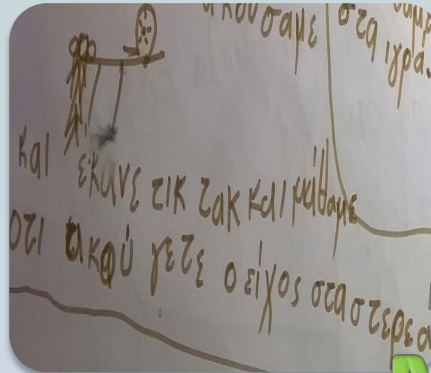 ακουσαμε στα υγρα
και έκανε τικ τακ και μάθαμε
οτι ακού γετε ο είχος στα στερεα